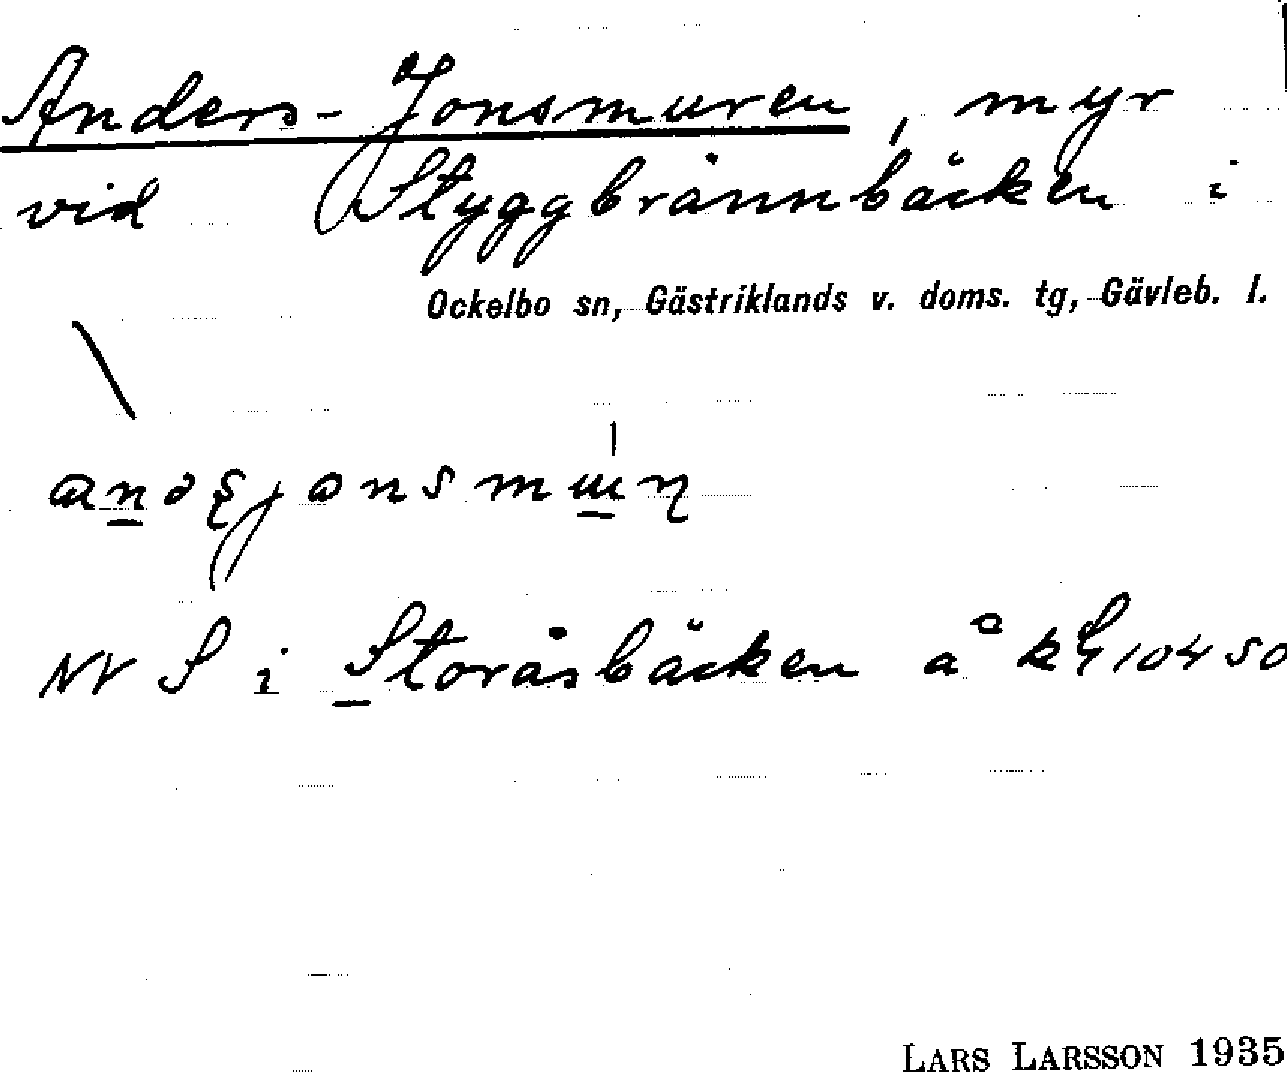 Anders-Jonsmuren, myr
vid Styggbrännbäcken i
Ockelbo sn, Gästriklands v. doms. tg, Gävleb. l.
NV S i Storåsbäcken å
LARS LARSSON 1935